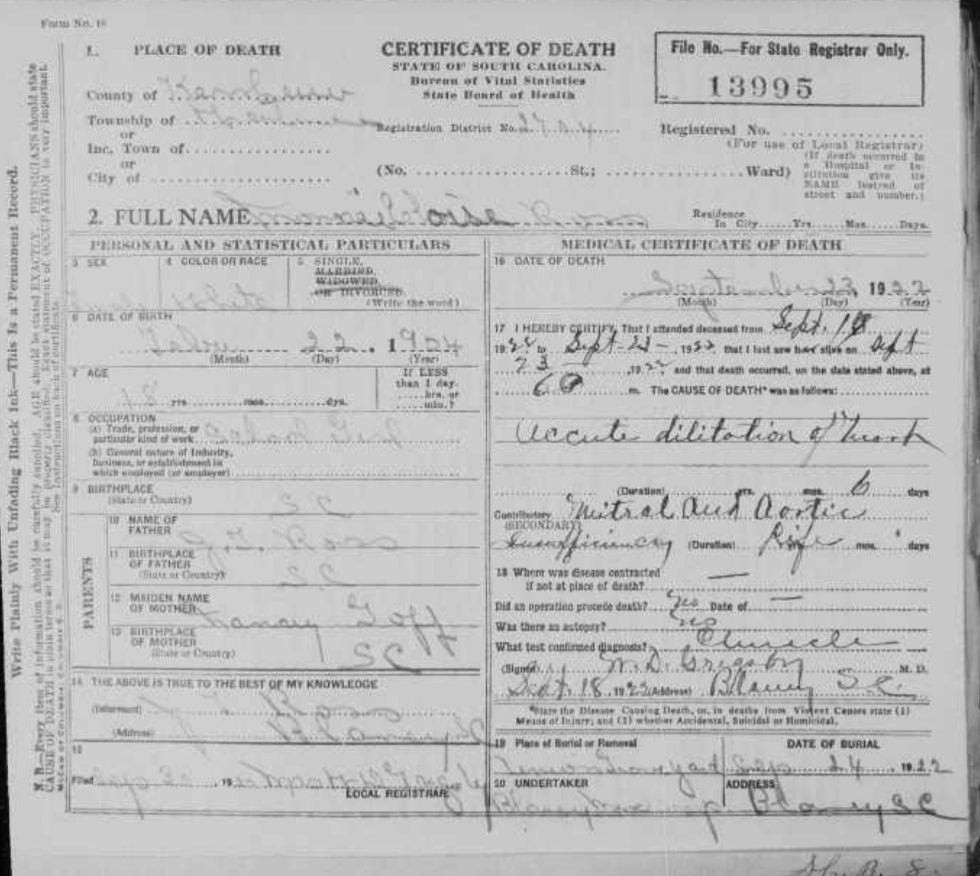 Form No. 10
1. PLACE OF DEATH
County of Kershaw
Township of
or
Inc. Town of
or
City of
CERTIFICATE OF DEATH
STATE OF SOUTH CAROLINA.
Bureau of Vital Statistics
State Board of Health
Registration District No. 2704
(No. St.; Ward)
File No.—For State Registrar Only.
13995
Registered No.
(For use of Local Registrar)
(If death occurred in
a Hospital or In-
stitution give its
NAME instead of
street and number.)
2. FULL NAME Ross
Residence
In City Yrs. Mos. Days.
PERSONAL AND STATISTICAL PARTICULARS
3 SEX
4 COLOR OR RACE
White
5 SINGLE,
MARRIED,
WIDOWED,
OR DIVORCED.
(Write the word)
6 DATE OF BIRTH
22 1904
(Month) (Day) (Year)
7 AGE
18 yrs. mos. dys.
If LESS
than 1 day.
hrs. or
min.?
8 OCCUPATION
(a) Trade, profession, or
particular kind of work School Girl
(b) General nature of Industry,
business, or establishment in
which employed (or employer)
9 BIRTHPLACE
(State or Country)
SC
PARENTS
10 NAME OF
FATHER
Ross
11 BIRTHPLACE
OF FATHER
(State or Country)
SC
12 MAIDEN NAME
OF MOTHER
Nancy Goff
13 BIRTHPLACE
OF MOTHER
(State or Country)
SC
14 THE ABOVE IS TRUE TO THE BEST OF MY KNOWLEDGE
(Informant) Ross
(Address) Blaney SC
15
Filed 19
LOCAL REGISTRAR
MEDICAL CERTIFICATE OF DEATH
16 DATE OF DEATH
September 23, 1922
(Month) (Day) (Year)
17 I HEREBY CERTIFY, That I attended deceased from Sept. 18
1922 to Sept 23 — , 1922 that I last saw alive on Sept
23 , 1922 and that death occurred, on the date stated above, at
6 m. The CAUSE OF DEATH* was as follows:
Accute dilitation of heart
(Duration) yrs. mos. 6 days
Contributory Mitral and Aortic
(SECONDARY)
Insufficiency (Duration) Life mos. days
18 Where was disease contracted
if not at place of death? —
Did an operation precede death? No Date of —
Was there an autopsy? no
What test confirmed diagnosis? Clinicle
(Signed) W. D. Grigsby M. D.
Sept. 18, 1922 (Address) Blaney S.C.
*State the Disease Causing Death, or, in deaths from Violent Causes state (1)
Means of Injury; and (2) whether Accidental, Suicidal or Homicidal.
19 Place of Burial or Removal
DATE OF BURIAL
Sep 24, 1922
20 UNDERTAKER
ADDRESS
Blaney Blaney SC
Write Plainly With Unfading Black Ink—This Is a Permanent Record.
N. B.—Every item of information should be carefully supplied. AGE should be stated EXACTLY. PHYSICIANS should state
CAUSE OF DEATH in plain terms so that it may be properly classified. Exact statement of OCCUPATION is very important.
See instructions on back of certificate.